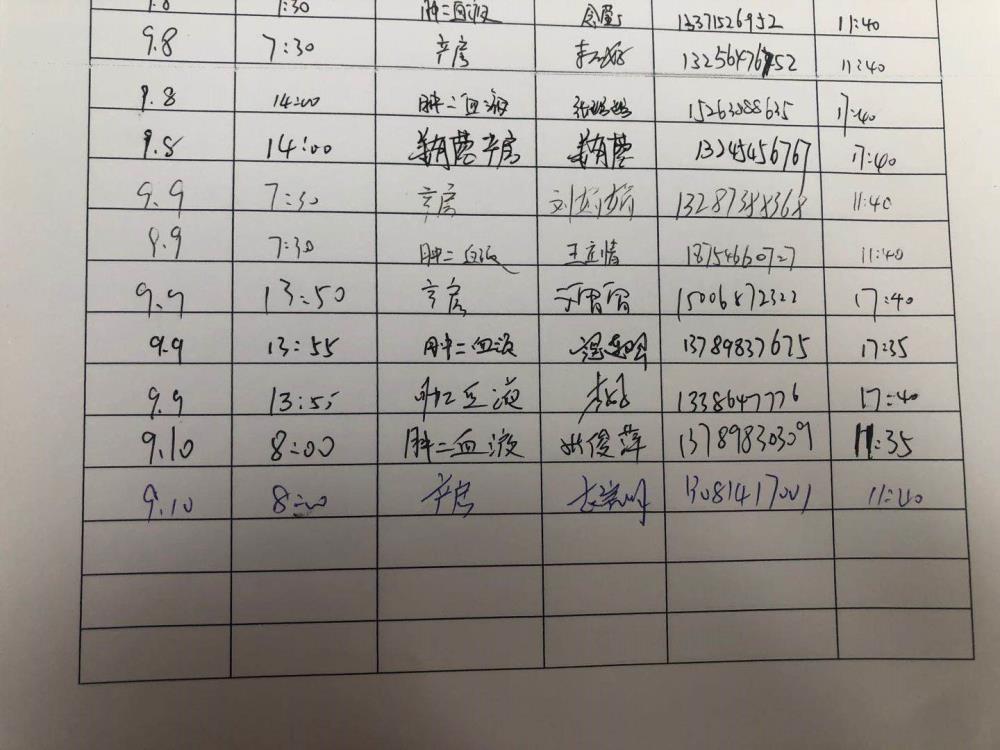 9.8 7:30 肿二血液 13371526952 11:40
9.8 7:30 产房 11:40
9.8 14:00 肿二血液 15263088635 17:40
9.8 14:00 产房 13245456767 17:40
9.9 7:30 产房 11:40
9.9 7:30 肿二血液 王立情 18754660727 11:40
9.9 13:50 产房 15006872322 17:40
9.9 13:55 肿二血液 13789837675 17:35
9.9 13:55 肿二血液 13386477776 17:40
9.10 8:00 肿二血液 姚俊萍 13789830309 11:35
9.10 8:00 产房 13081417001 11:40